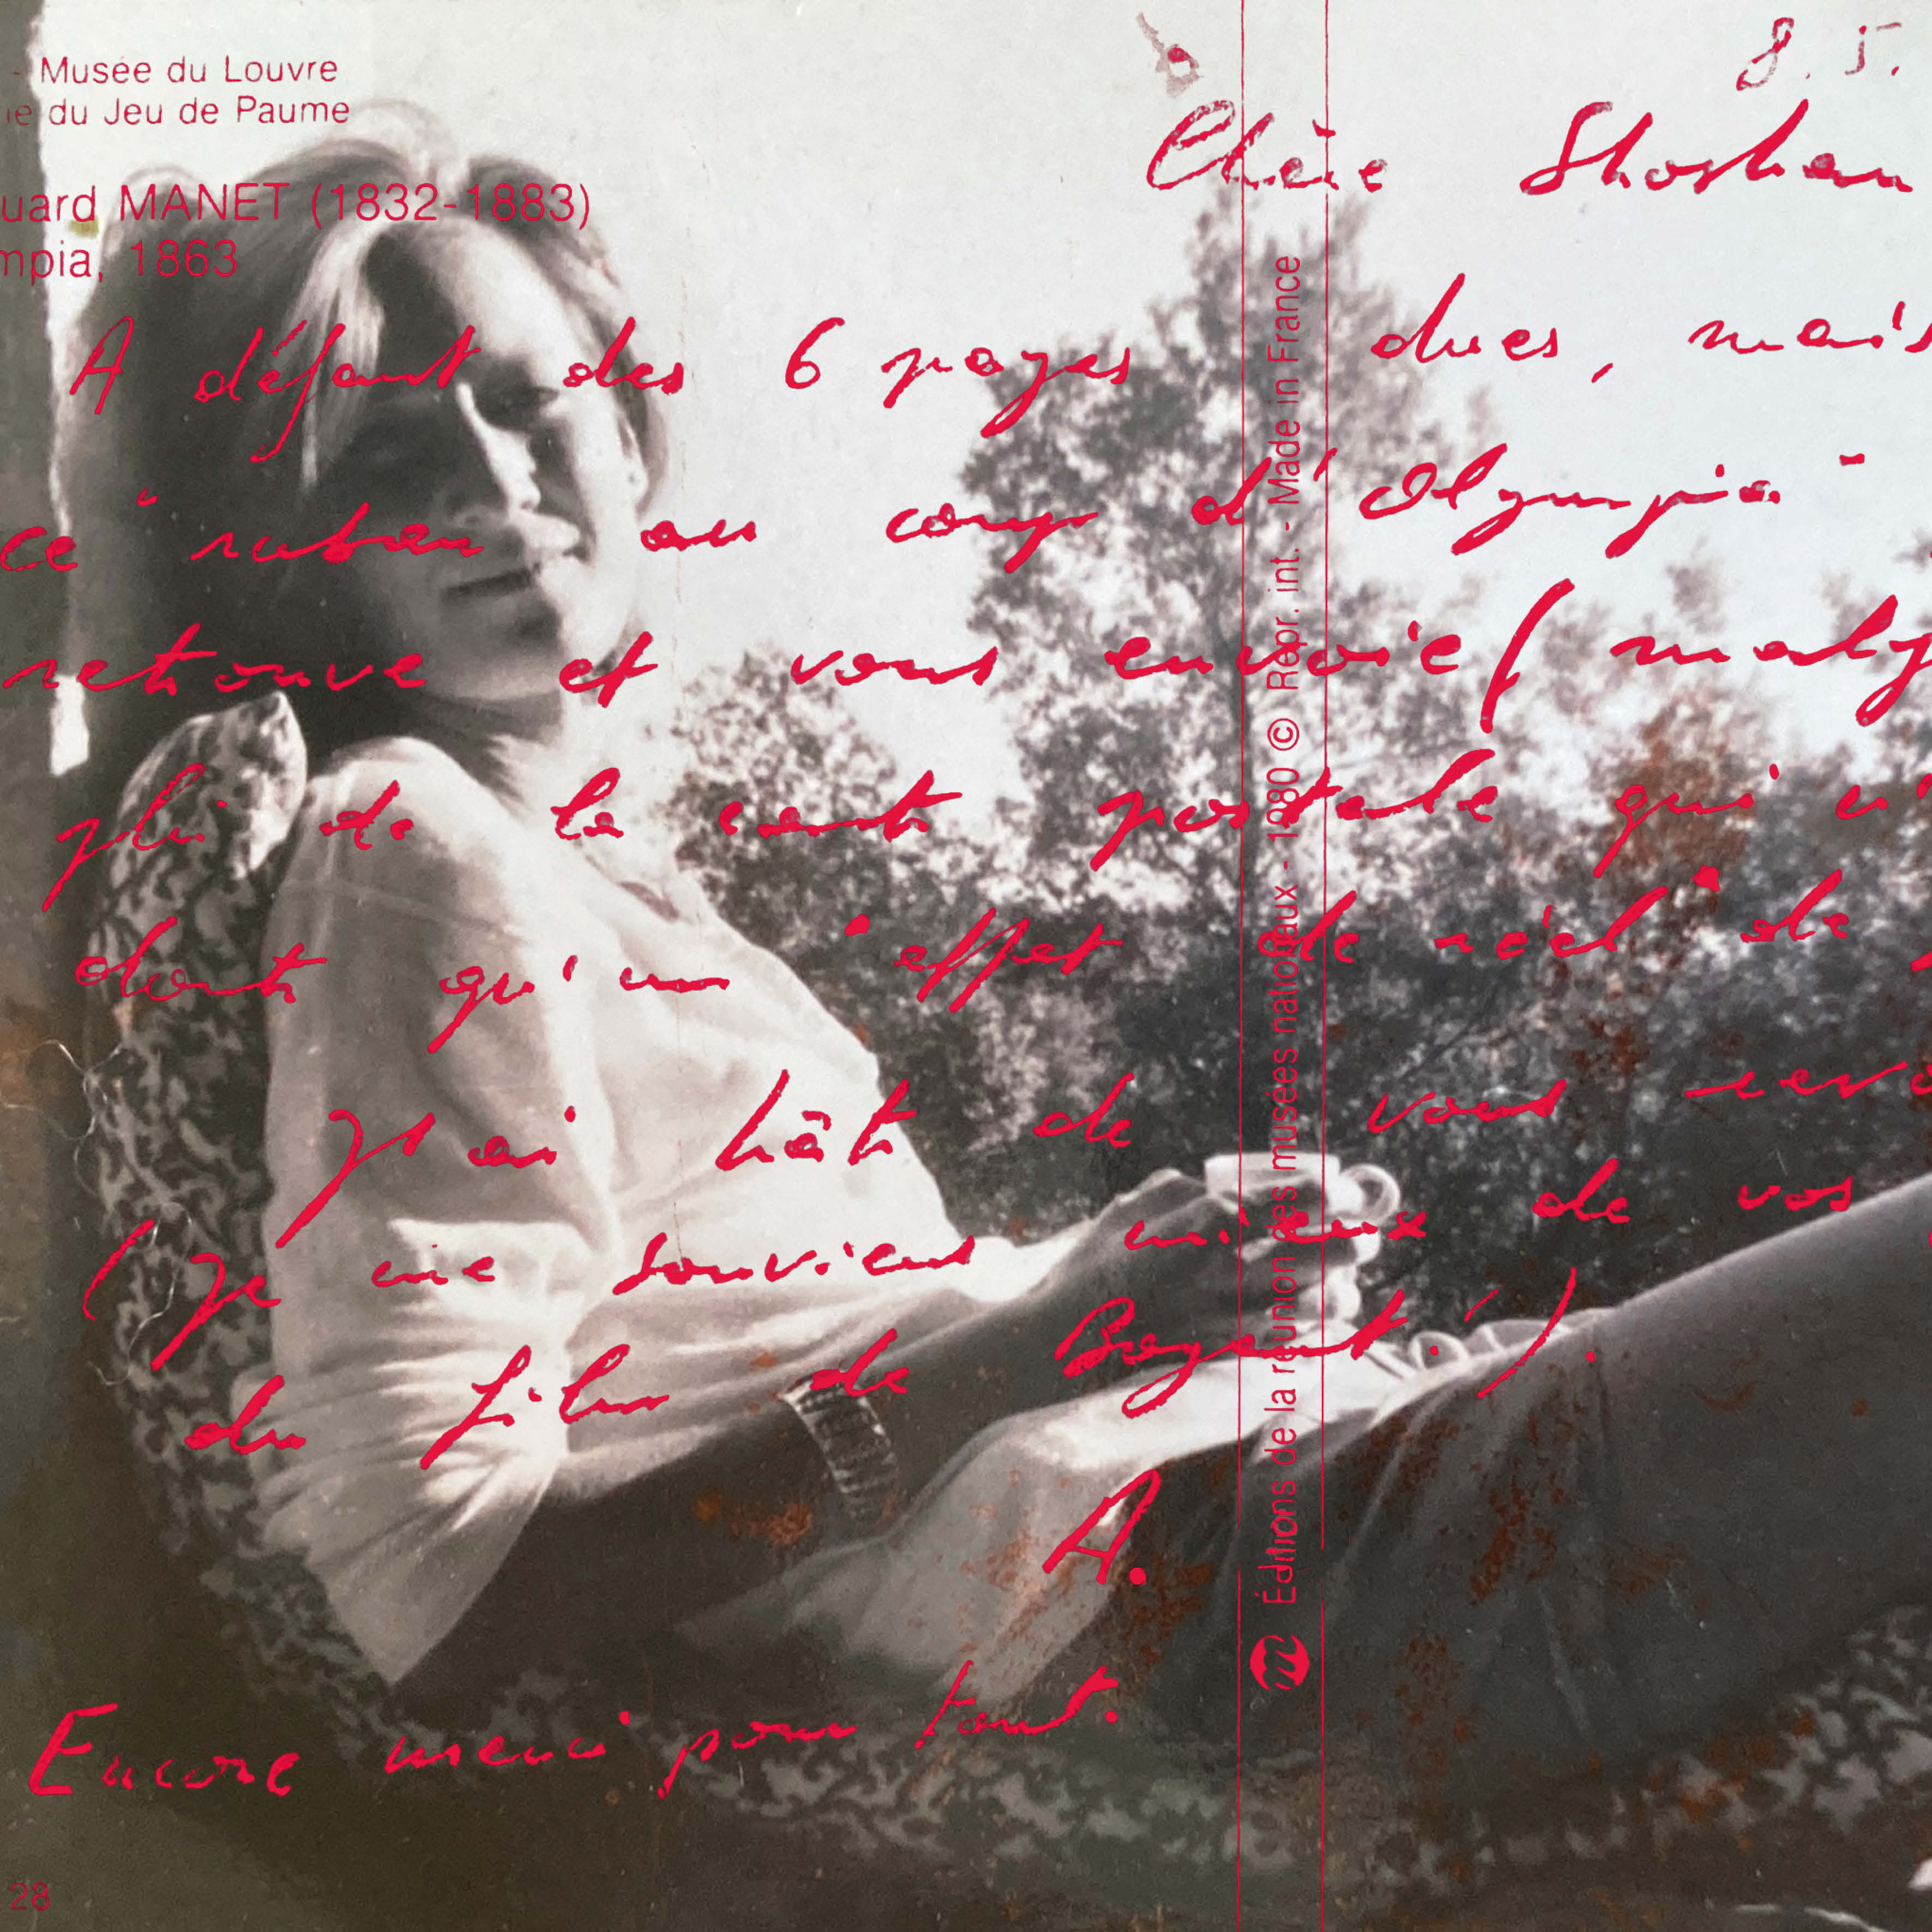 - Musée du Louvre
ie du Jeu de Paume
uard MANET (1832-1883)
mpia, 1863
8. 5.
Chère Shoshan
A défaut des 6 pages dues, mais
ce "ruban au coup d'Olympia"
retrouve et vous envoie (malg
pli de la carte postale qui n'
doute qu'un "effet de réel" de
J'ai hâte de vous revo
(Je me souviens mieux de vos
du film de Bogart!).
A.
Encore merci pour tout.
Éditions de la réunion des musées nationaux - 1980 © Repr. int. - Made in France
28